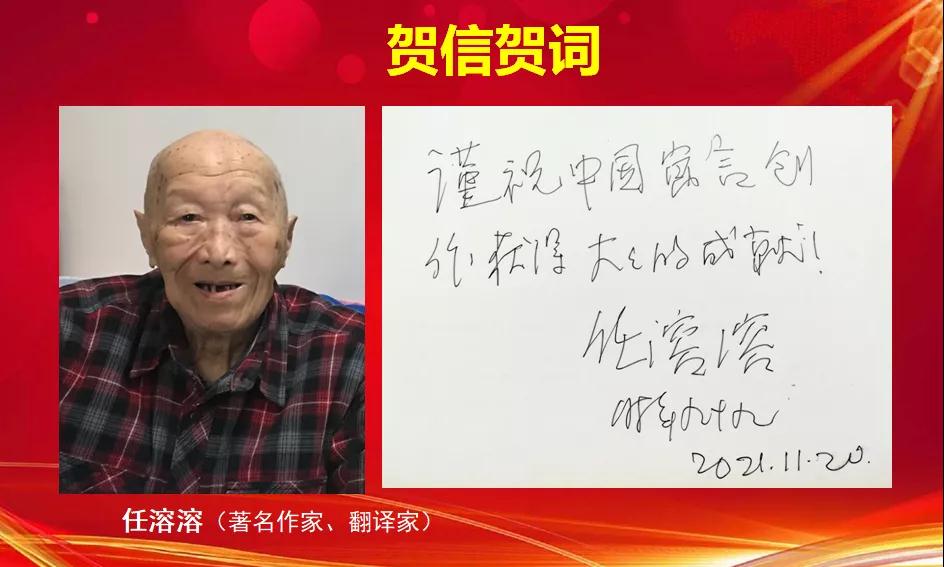 贺信贺词
谨祝中国寓言创
作获得大大的成就!
任溶溶
时年九十九
2021.11.20.
任溶溶（著名作家、翻译家）